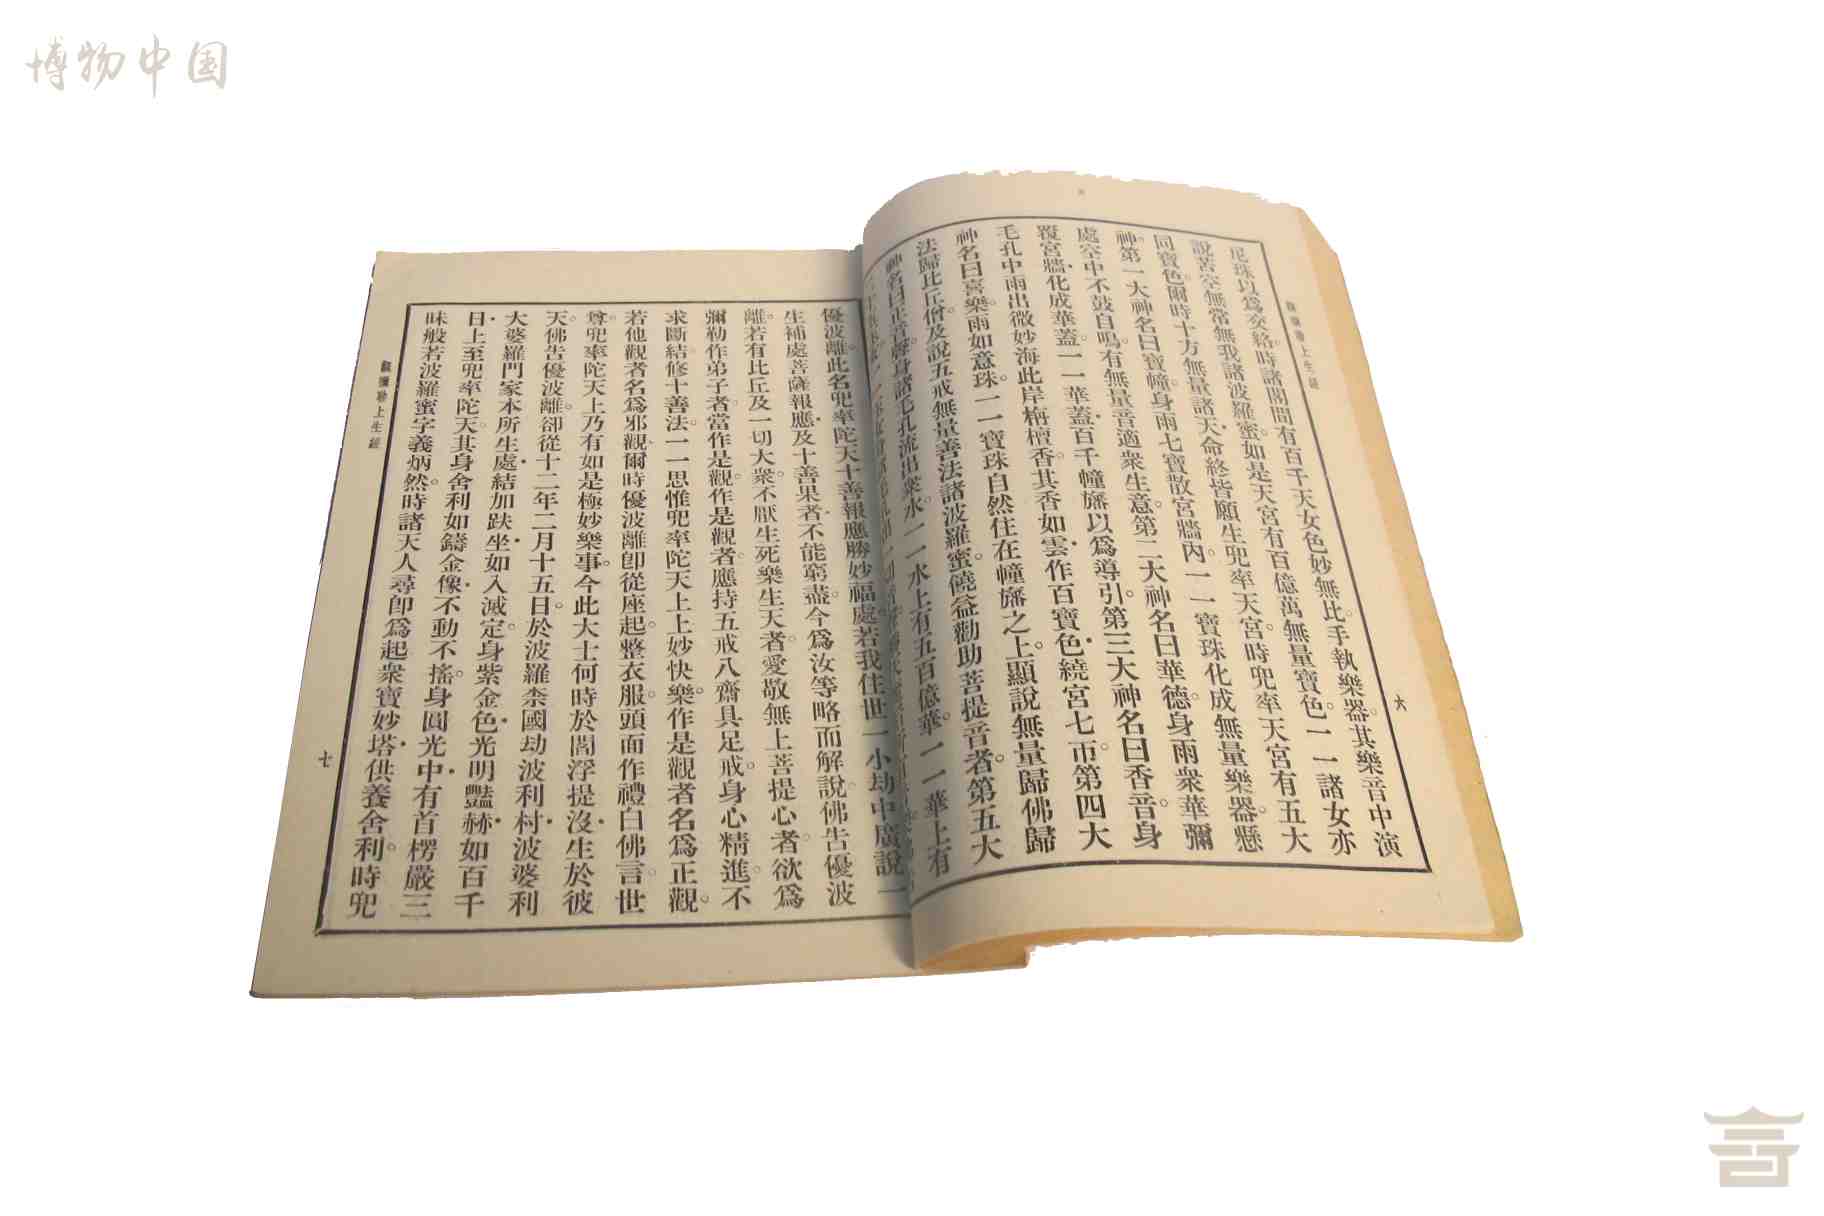 博物中国
觀彌勒上生經
六
尼珠以爲交絡。時諸閣間有百千天女色妙無比。手執樂器。其樂音中演
說苦空無常無我諸波羅蜜。如是天宮有百億萬無量寶色。一一諸女亦
同寶色。爾時十方無量諸天。命終皆願生兜率天宮。時兜率天宮有五大
神。第一大神名曰寶幢。身雨七寶散宮牆內。一一寶珠化成無量樂器。懸
處空中不鼓自鳴。有無量音適衆生意。第二大神名曰華德。身雨衆華彌
覆宮牆。化成華蓋。一一華蓋。百千幢旛以爲導引。第三大神名曰香音。身
毛孔中雨出微妙海此岸栴檀香。其香如雲。作百寶色。繞宮七帀。第四大
神名曰喜樂。雨如意珠。一一寶珠自然住在幢旛之上。顯說無量歸佛歸
法歸比丘僧。及說五戒無量善法諸波羅蜜。饒益勸助菩提音者。第五大
神名曰正音聲。身諸毛孔流出衆水。一一水上有五百億華。一一華上有
優波離。此名兜率陀天十善報應勝妙福處。若我住世一小劫中廣說一
生補處菩薩報應。及十善果者。不能窮盡。今爲汝等略而解說。佛告優波
離。若有比丘及一切大衆。不厭生死樂生天者。愛敬無上菩提心者。欲爲
彌勒作弟子者。當作是觀。作是觀者。應持五戒八齋具足戒。身心精進。不
求斷結。修十善法。一一思惟兜率陀天上上妙快樂。作是觀者名爲正觀。
若他觀者名爲邪觀。爾時優波離卽從座起。整衣服。頭面作禮白佛言。世
尊。兜率陀天上乃有如是極妙樂事。今此大士何時於閻浮提沒。生於彼
天。佛告優波離。卻從十二年二月十五日。於波羅柰國劫波利村。波婆利
大婆羅門家本所生處。結加趺坐。如入滅定。身紫金色。光明豔赫。如百千
日。上至兜率陀天。其身舍利如鑄金像。不動不搖。身圓光中。有首楞嚴三
昧般若波羅蜜字義炳然。時諸天人尋卽爲起衆寶妙塔。供養舍利。時兜
觀彌勒上生經
七